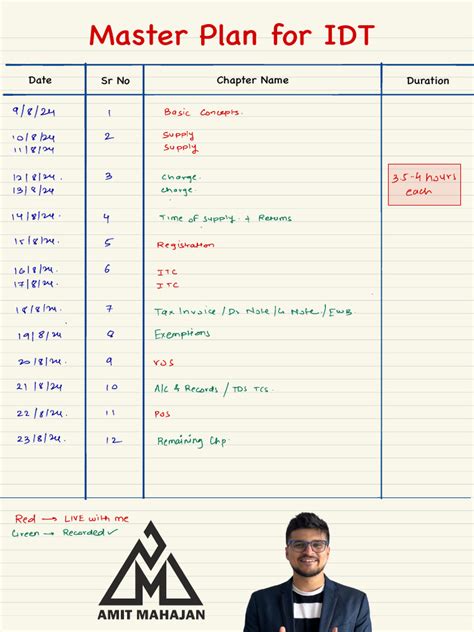 Master Plan for IDT
Date Sr No Chapter Name Duration
9/8/24 1 Basic Concepts.
10/8/24 2 Supply
11/8/24 Supply
12/8/24 3 Charge.
13/8/24 Charge.
3.5-4 hours
each
14/8/24. 4 Time of Supply + Returns
15/8/24. 5 Registration
16/8/24. 6 ITC
17/8/24. ITC
18/8/24. 7 Tax Invoice / Dr Note / Cr Note / EWB.
19/8/24 8 Exemptions
20/8/24 9 VOS
21/8/24 10 A/c & Records / TDS TCS.
22/8/24. 11 POS
23/8/24. 12 Remaining Chp.
Red → LIVE with me
Green → Recorded ✓
AMIT MAHAJAN